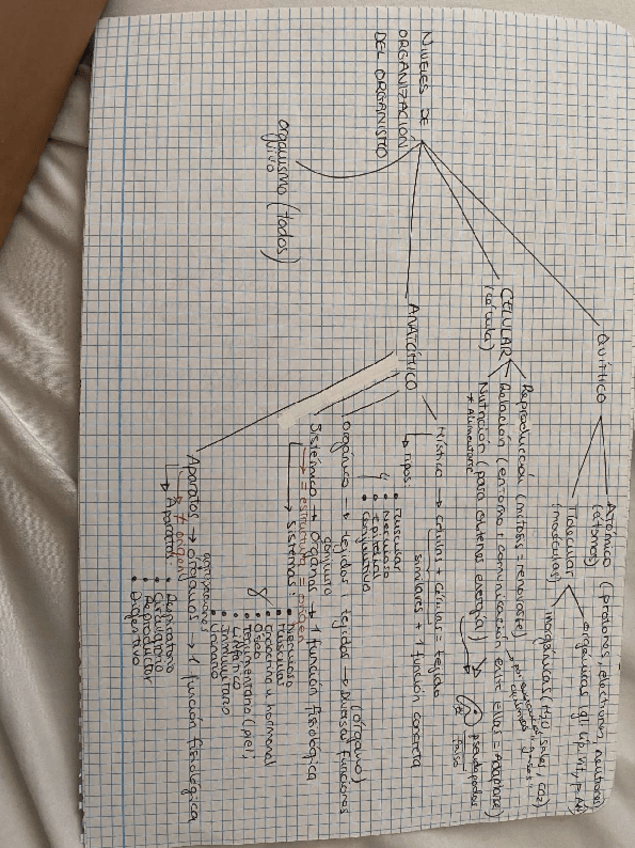 NIVELES DE
ORGANIZACIÓN
DEL ORGANISMO
QUÍMICO
Atómico (protones, electrones, neutrones)
(átomos)
Molecular
(moléculas)
orgánicas (gl, lip,
inorgánicas (H2O, sales, CO2)
CELULAR
(célula)
Reproducción (mitosis = renovarse)
Relación (entorno y comunicación entre ellas = Adaptarse)
Nutrición (para obtener energía)
* Alimentarse
pseudópodos
Falso
ANATÓMICO
Hístico → células + células = tejido
similares + 1 función concreta
tipos:
4
• Muscular
• Nervioso
• Epitelial
• Conjuntivo
Orgánico → tejidos + tejidos → Diversas funciones
(órgano)
conjunto
Sistémico → órganos → 1 función fisiológica
= estructura = origen
Sistemas:
8
• Nervioso
• Muscular
• Óseo
• Endocrino u hormonal
• Tegumentario (piel)
• Linfático
• Inmunitario
• Urinario
agrupaciones
Aparatos → órganos → 1 función fisiológica
≠ origen
Aparatos:
• Respiratorio
• Circulatorio
• Reproductor
• Digestivo
organismo (todos)
vivo